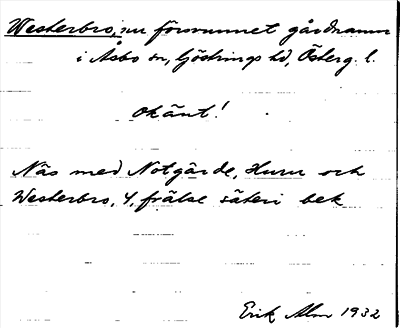 Westerbro, nu försvunnet gårdnamn
i Åsbo sn, Göstrings hd, Österg. l.
Okänt!
Näs med Notgärde, Huru och
Westerbro, 4, frälse säteri bek
Erik Alm 1932